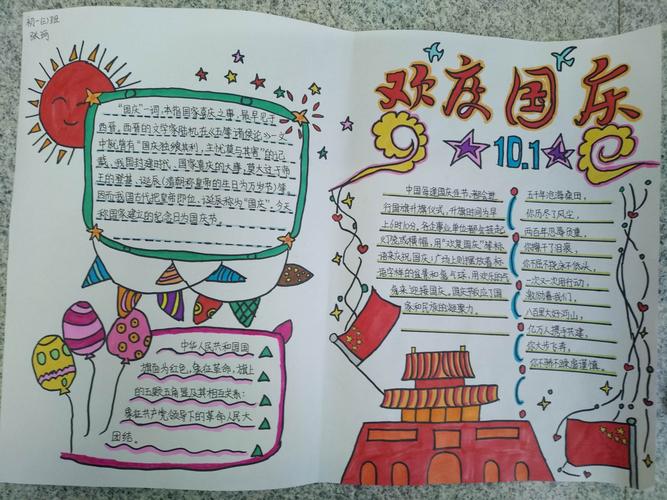 初一(3)班
张巧
"国庆"一词,本指国家喜庆之事,最早见于
西晋。西晋的文学家陆机在《五等诸侯论》一文
中就曾有"国庆独飨其利,主忧莫与其害"的记
载。我国封建时代,国家喜庆的大事,莫大过于帝
王的登基、诞辰(清朝称皇帝的生日为万岁节)等。
因而我国古代把皇帝即位、诞辰称为"国庆"。今天
称国家建立的纪念日为国庆节。
中华人民共和国国
旗面为红色,象征革命,旗上
的五颗五角星及其相互关系:
象征共产党领导下的革命人民大
团结。
欢度国庆
10.1
中国每逢国庆佳节,都会举
行国旗升旗仪式,升旗时间为早
上6时10分,各企事业单位都会挂起
灯笼或横幅,用"欢度国庆"等标
语来庆祝,国庆广场上则摆放着标
语字样的盆景和氢气球,用欢乐的气
氛来迎接国庆。国庆节
家和民族的凝聚力。
五千年沧海桑田,
你历尽了风尘,
两百年忍辱负重,
你撑下了日来,
你不屈不挠永不低头,
一次又一次用行动,
激励着我们,
八百里大好河山,
亿万人携手共建,
你大步飞奔,
你不骄不躁虚谨慎。